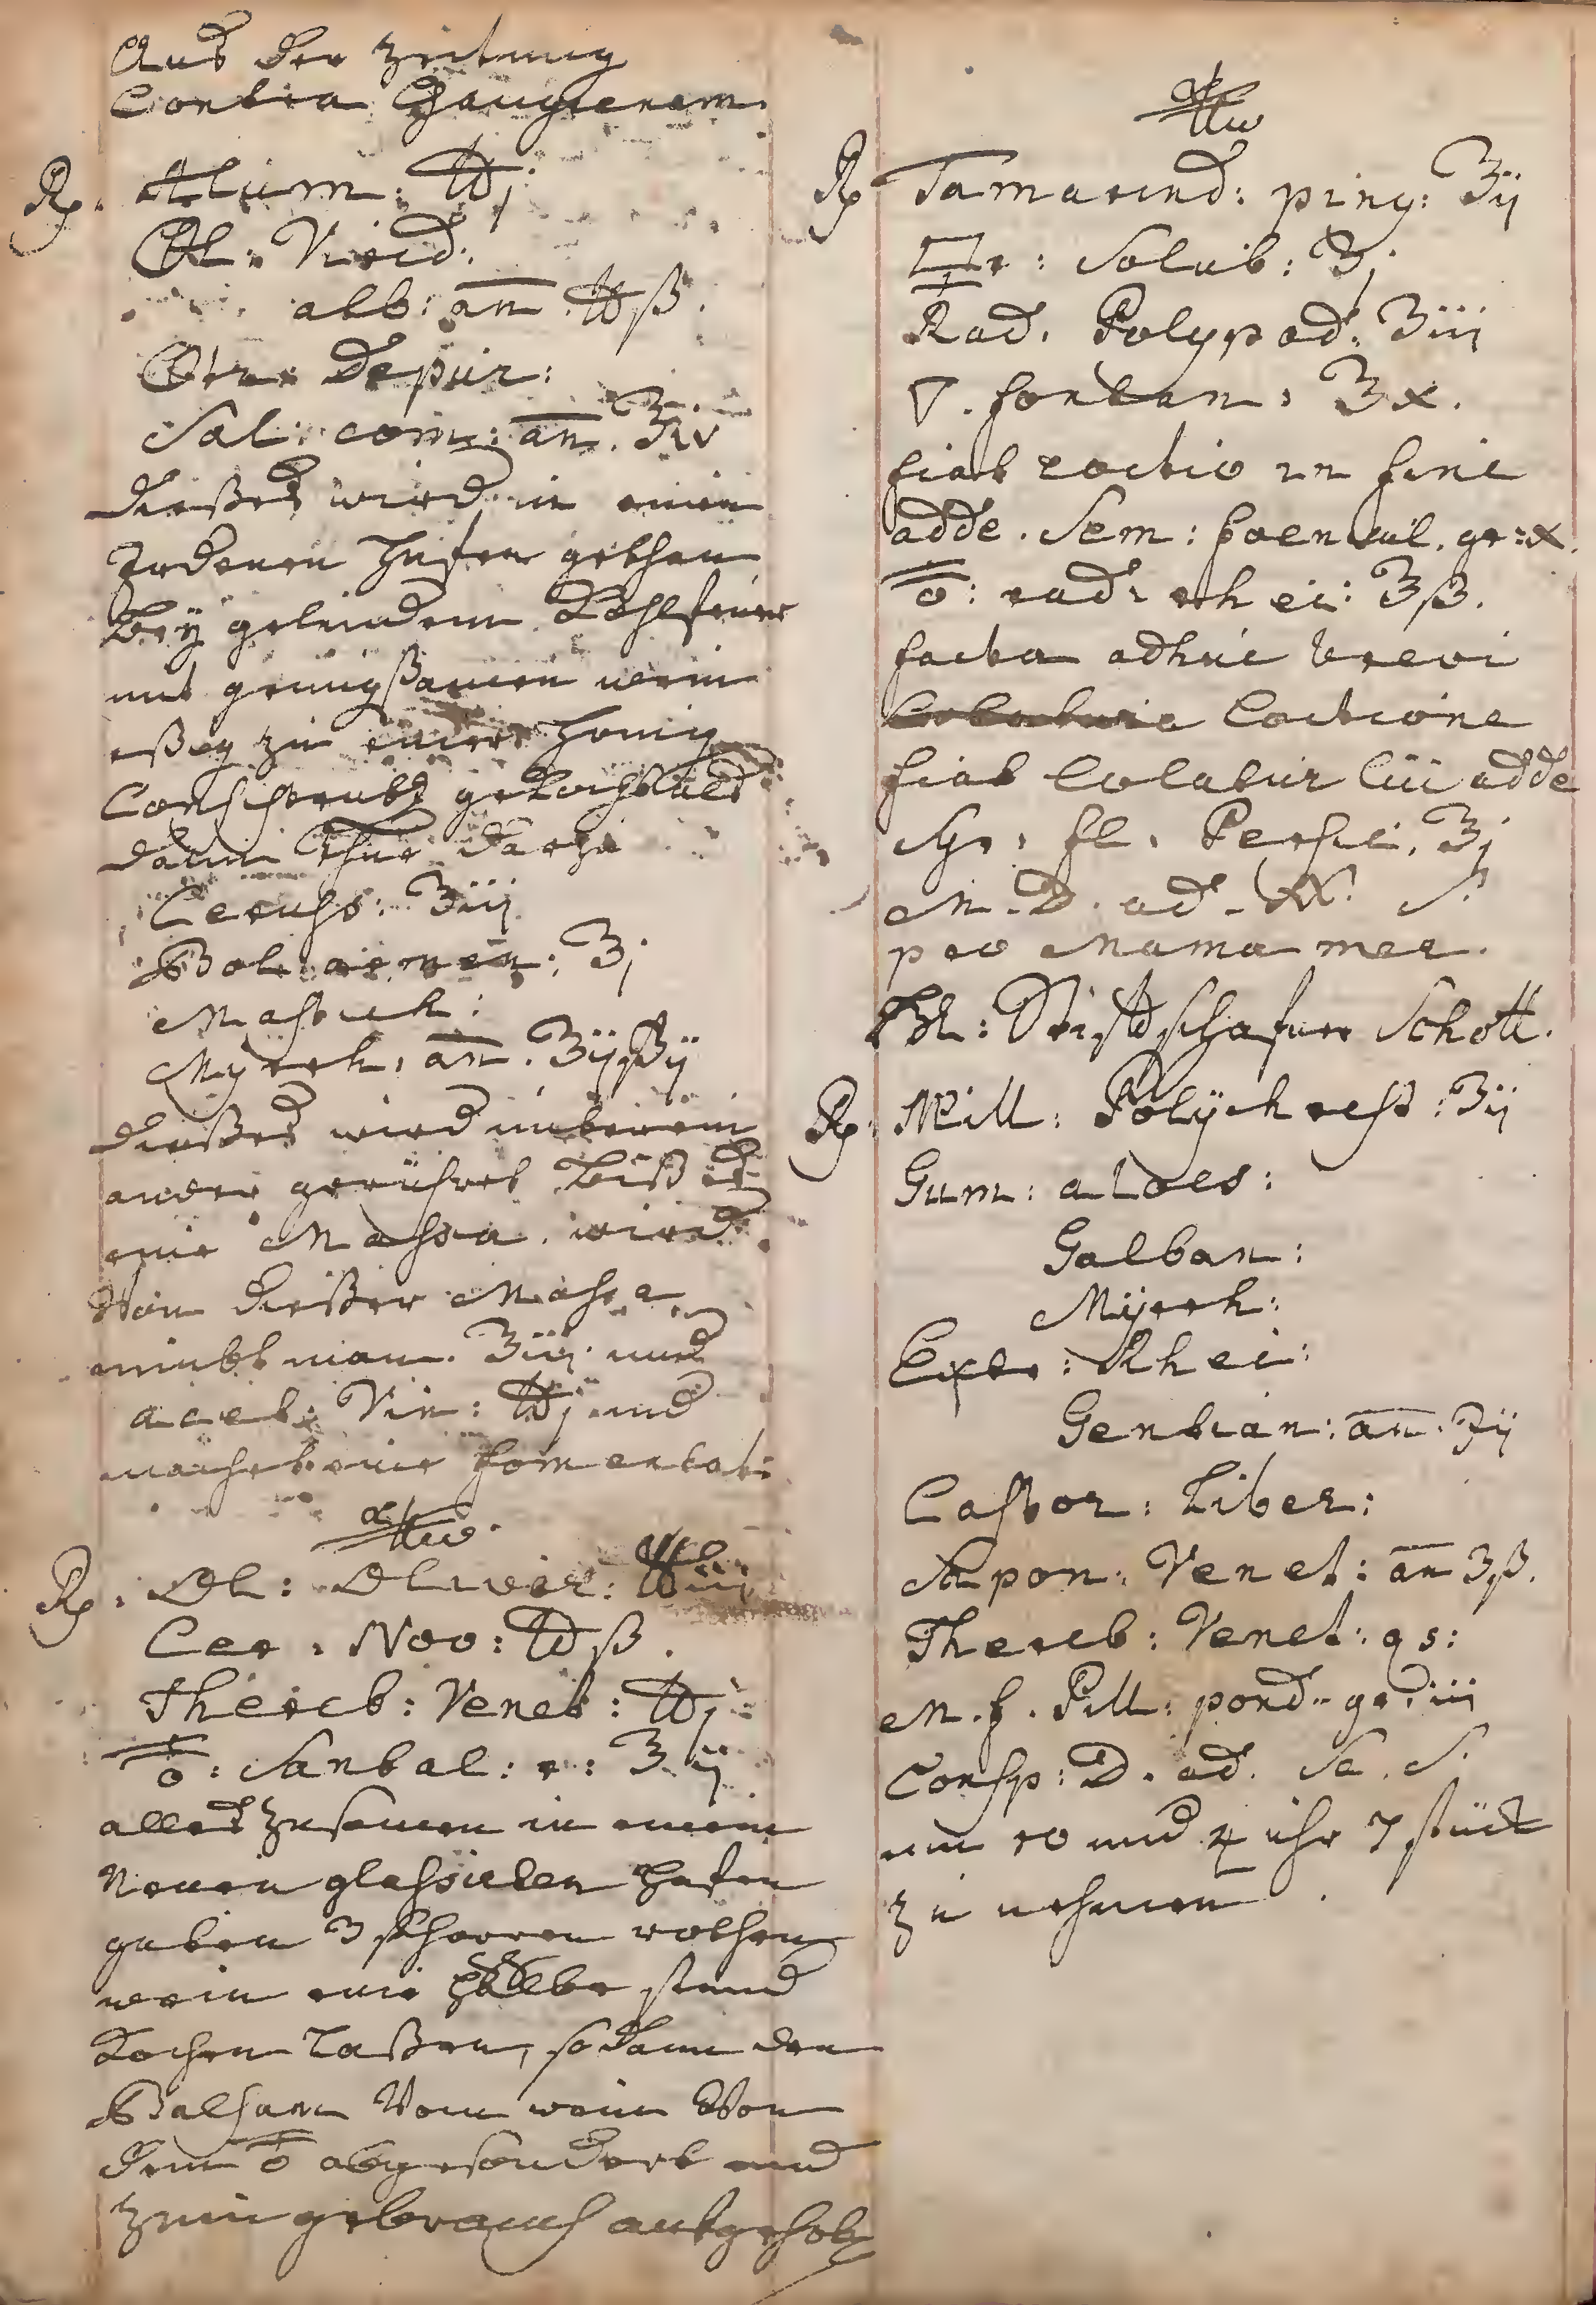 Aus der Zeitung
Contra Gangrenam.
Rp. Alum: ℔j
Vitriol: Virid:
alb: an̄. ℔ß.
Nitr: depur:
Sal: com: an̄. ℥iv
dießes wird in einen
Irdenen Hafen gethan
bey gelindem Kohlfeuer
mit genugßamen wein
eßig zu einer Honig
Consistentz gekocht als
dann thue darzu
Ceruss: ℥iij
Bol: armen: ℥j
Mastich:
Myrrh: an̄. ℥ij
dießes wird unterein
ander gerühret biß es
eine Massa wird.
Von dießer Massa
nimbt man ℥iij und
acet: Vin: ℔j und
machet eine fomentat:
Rp. Ol: Olivar: ℔iij
Cer: Nov: ℔ß.
Thereb: Venet: ℔j
Santal: r: ℥ij
alles zusamen in einem
Neuen glassürten Hafen
geben 3 schoppen rothen
wein eine halbe stund
Kochen laßen, so dann den
Balsam Vom wein Von
dem abgesondert und
zum gebrauch aufgehob
Rp Tamarind: ping: ℥ij
🜿r: Solub: ℥j.
Rad. Polypod: ℥iij
▽. fontan: ℥x.
fiat coctio in fine
adde. Sem: foenicul. gr: x.
rad: rhei: ℥ß.
facta adhuc brevi
Coctione
fiat Colatur Cui adde
Syr. fl. Persic. ℥j
M. D. ad. S.
pro Mama mea.
H: Schott.
Rp. Pill: Polychrest: ℥ij
Gum: aloes:
Galban:
Myrrh:
Extr: Rhei:
Gentian: an̄. ʒij
Castor: Siber:
Sapon: Venet: an̄ ʒß.
Thereb: Venet: qs:
M. f. Pill: pond. gr. iii
Consp: D. ad. Sc. S.
um 10 und 4 uhr 7 stück
zu nehmen.